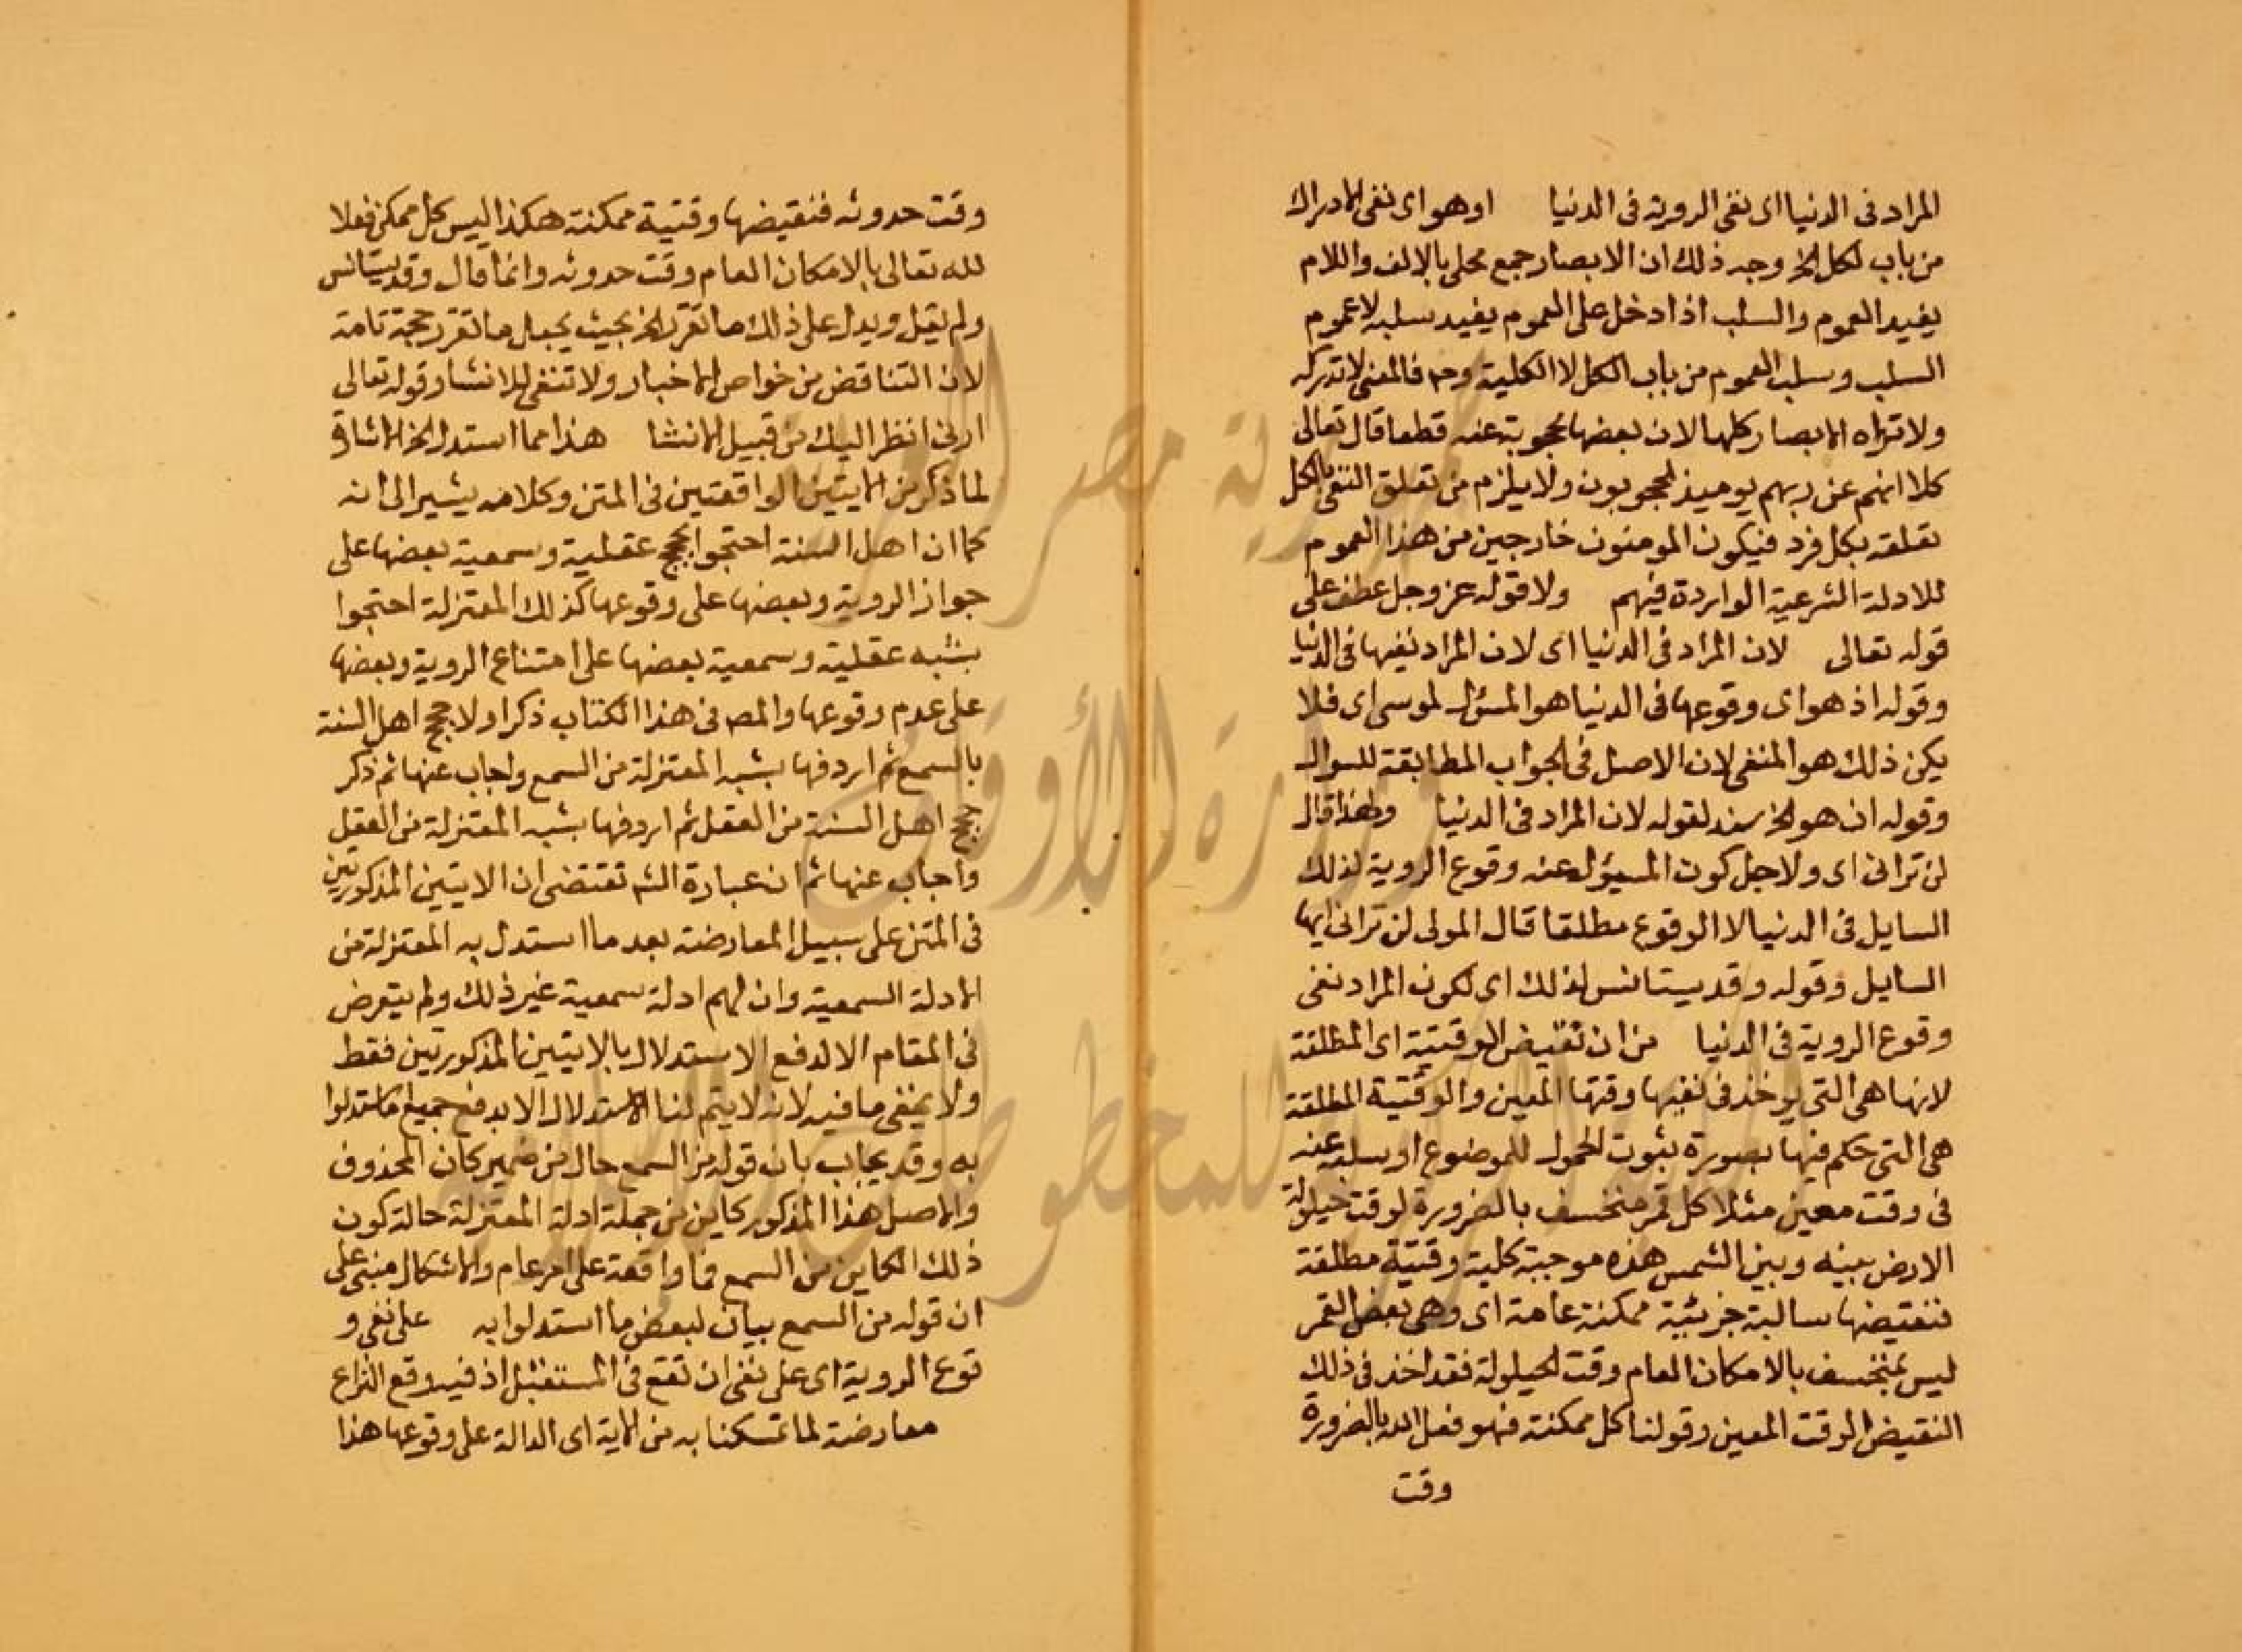 المراد فى الدنيا اى نفى الروية فى الدنيا او هو اى نفى الادراك
من باب لكل الخ وجه ذلك ان الابصار جمع محلى بالالف واللام
يفيد العموم والسلب اذا دخل على العموم يفيد سلبه لا عموم
السلب وسلب العموم من باب الكل لا الكلية وح فالمعنى لا تدركه
ولا تراه الابصار كلها لان بعضها محجوبة عنه قطعا قال تعالى
كلا انهم عن ربهم يوميذ لمحجوبون ولا يلزم من تعلق النفى بالكل
تعلقه بكل فرد فيكون المومنون خارجين من هذا العموم
للادلة الشرعية الواردة فيهم ولا قوله عز وجل عطف على
قوله تعالى لان المراد فى الدنيا اى لان المراد نفيها فى الدنيا
وقوله اذ هو اى وقوعها فى الدنيا هو المسؤل لموسى اى فلا
يكن ذلك هو المنفى لان الاصل فى الجواب المطابقة للسوال
وقوله ان هو الخ سند لقوله لان المراد فى الدنيا ولهذا قال
لن ترانى اى ولاجل كون المسيؤل عنه وقوع الروية لذلك
السايل فى الدنيا لا الوقوع مطلقا قال المولى لن ترانى ايها
السايل وقوله وقد يستانس لذلك اى لكون المراد نفى
وقوع الروية فى الدنيا من ان نقيض الوقتية اى المطلقة
لانها هى التى يوخذ فى نقيها وقتها المعين والوقتية المطلقة
هى التى حكم فيها بصورة بثوت المحمول للموضوع او سلبه عنه
فى وقت معين مثلا كل قمر منخسف بالضرورة لوقت حيلولة
الارض بينه وبين الشمس هذه موجبة كلية وقتية مطلقة
فنقيضها سالبة جزيئية ممكنة عامة اى وهى بعض القمر
ليس بمنخسف بالامكان العام وقت الحيلولة فقد اخذ فى ذلك
النقيض الوقت المعين وقولنا كل ممكنة فهو فعل الله بالضرورة
وقت
وقت حدوثه فنقيضها وقتية ممكنة هكذا ليس كل ممكن فعلا
لله تعالى بالامكان العام وقت حدوثه وانما قال وقد يستانس
ولم يقل ويدل على ذلك ما تقرر الخ بحيث يجعل ما تقرر حجة تامة
لان التناقض من خواص الاخبار ولا تنفى للانشا وقوله تعالى
ارنى انظر اليك من قبيل الانشا هذا مما استدل الخ الاشارة
لما ذكر من الايتين الواقعتين فى المتن وكلامه يشير الى انه
كما ان اهل السنة احتجوا بحجج عقلية وسمعية بعضها على
جواز الروية وبعضها على وقوعها كذلك المعتزلة احتجوا
بشبه عقلية وسمعية بعضها على امتناع الروية وبعضها
على عدم وقوعها والمصـ فى هذا الكتاب ذكر اولا حجج اهل السنة
بالسمع ثم اردفها بشبه المعتزلة من السمع واجاب عنها ثم ذكر
حجج اهل السنة من العقل ثم اردفها بشبه المعتزلة من العقل
واجاب عنها ثم ان عبارة الشـ تقتضى ان الايتين المذكورتين
فى المتن على سبيل المعارضة بعد ما استدل به المعتزلة من
الادلة السمعية وان لهم ادلة سمعية غير ذلك ولم يتعرض
فى المقام الا لدفع الاستدلال بالايتين المذكورتين فقط
ولا يخفى ما فيه لانه لا يتم لنا الاستدلال الا بدفع جميع ما استدلوا
به وقد يجاب بان قوله من السمع حال من ضمير كان المحذوف
والاصل هذا المذكور كاين من جملة ادلة المعتزلة حالة كون
ذلك الكاين من السمع فما واقعة على امر عام والاشكال مبنى على
ان قوله من السمع بيان لبعض ما استدلوا به على نفى و
قوع الروية اى على نفى ان تقع فى المستقبل اذ فيه وقع النزاع
معارضة لما تمسكنا به من الاية اى الدالة على وقوعها هذا